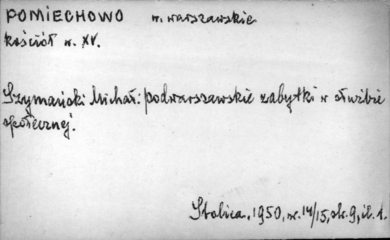 POMIECHOWO w. warszawskie
kościół w. XV.
Szymański Michał: podwarszawskie zabytki w służbie
społecznej.
Stolica, 1950, nr. 14/15, str. 9, il. 1.